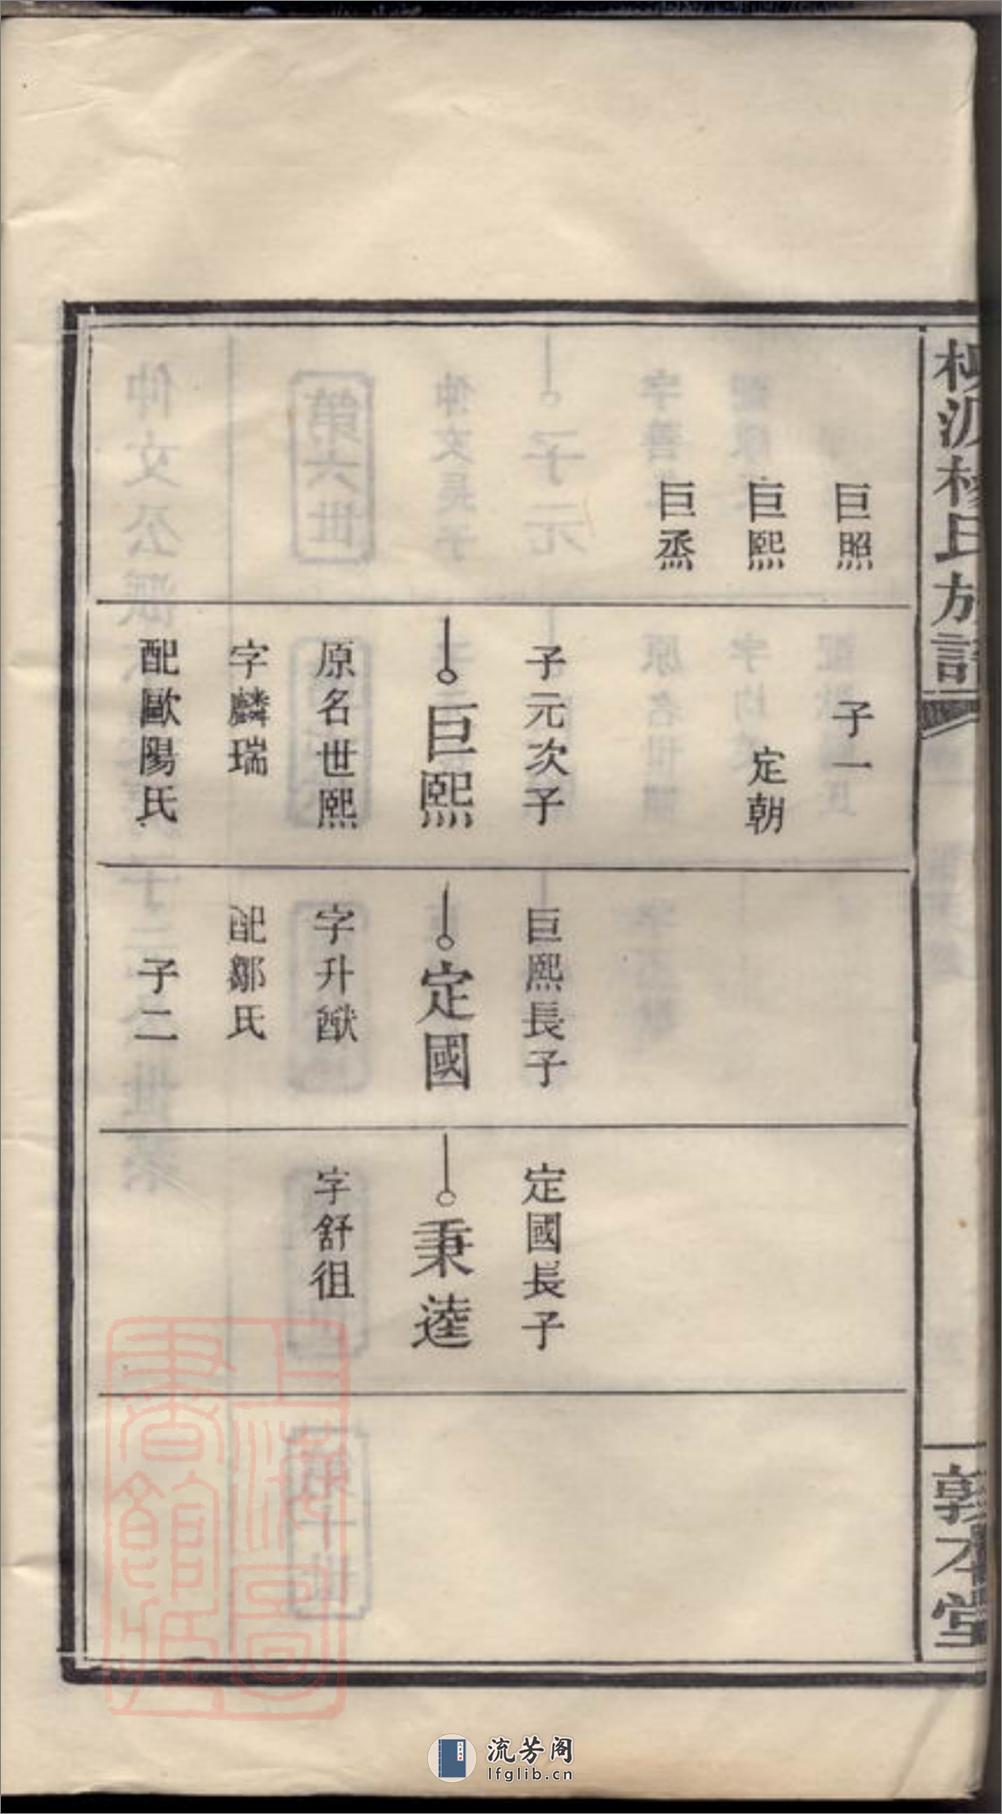 巨照
巨熙
巨烝
子一
定朝
子元次子
巨熙
原名世熙
字麟瑞
配歐陽氏
巨熙長子
定國
字升猷
配鄒氏
子二
定國長子
秉逵
字舒徂
敦本堂
上海圖
書館藏
流芳阁
lfglib.cn